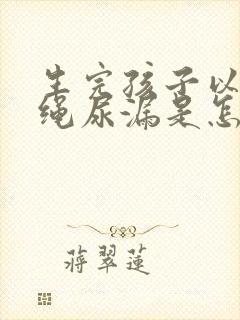 生完孩子以
绳尿漏是怎
蒋翠莲